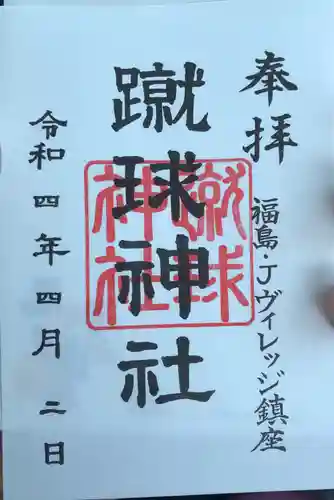 奉拝
福島・Jヴィレッジ鎮座
蹴球神社
蹴球神社
令和四年四月二日